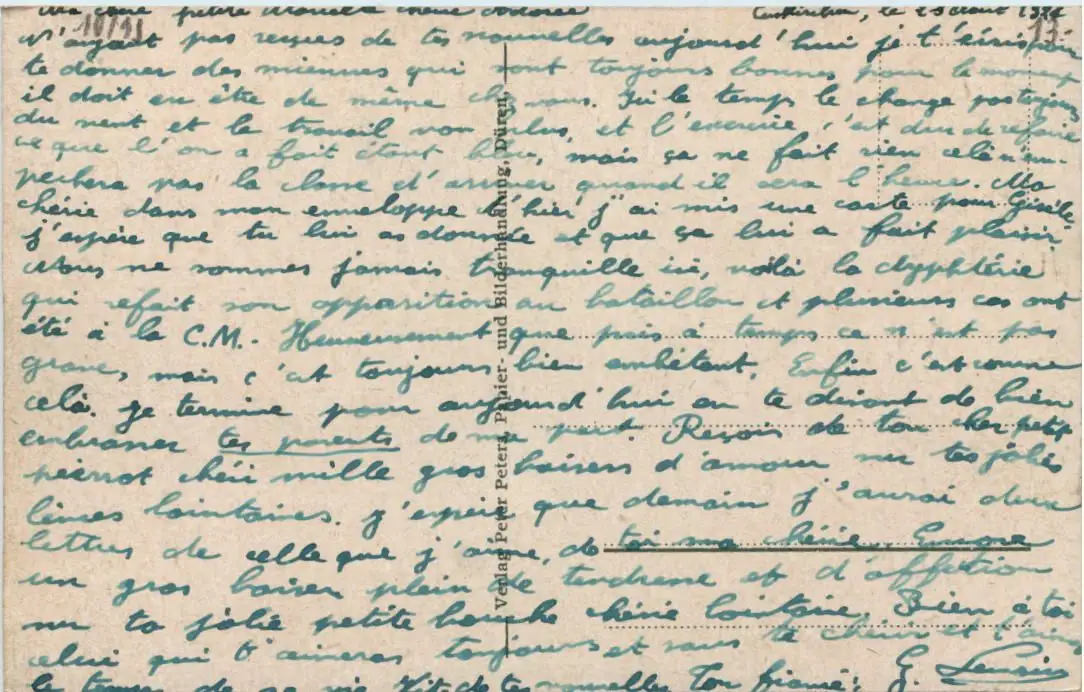 Ma chère petite Marcelle chérie adorée
Euskirchen, le 23 août
N'ayant pas reçues de tes nouvelles aujourd'hui je t'écris pour
te donner des miennes qui sont toujours bonnes pour le moment
il doit en être de même chez vous. Ici le temps le change pas toujours
du vent et le travail non plus, et l'exercice, c'est dur de refaire
ce que l'on a fait étant bleu, mais ça ne fait rien celà n'em-
pechera pas la classe d'arriver quand il sera l'heure. Ma
chérie dans mon enveloppe d'hier j'ai mis une carte pour Gisèle
j'espère que tu lui as donnée et que ça lui a fait plaisir.
Nous ne sommes jamais tranquille ici, voilà la dyphtérie
qui refait son apparition au bataillon et plusieurs cas ont
été à la C.M.. Heureusement que pris à temps ce n'est pas
grave, mais c'est toujours bien embêtant. Enfin c'est comme
celà. Je termine pour aujourd'hui en te disant de bien
embrasser tes parents de ma part. Reçois de ton cher petit
pierrot chéri mille gros baisers d'amour sur tes jolies
lèvres lointaines. J'espère que demain j'aurai deux
lettres de celle que j'aime, de toi ma chérie. Encore
un gros baiser plein de tendresse et d'affection
sur ta jolie petite bouche chérie lointaine. Bien à toi
celui qui t'aimeras toujours et sans te chérir et t'aimer
le temps de sa vie. Vite de tes nouvelles Ton fiancé: G.
Verlag Peter Peters, Papier- und Bilderhandlung, Düren.